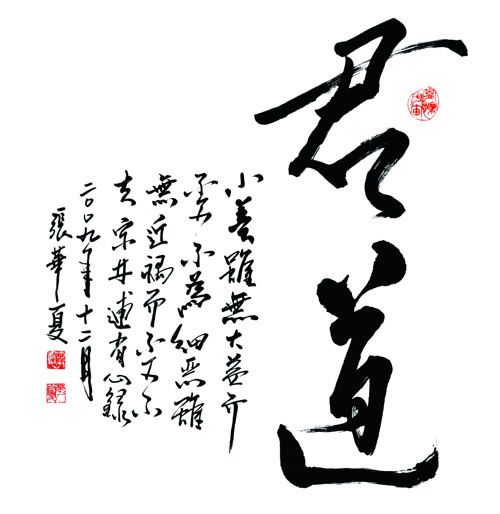 君道
小善雖無大益而
不可不為細惡雖
無近禍而不可不
去宋林逋省心錄
二〇〇九年十二月
張華夏